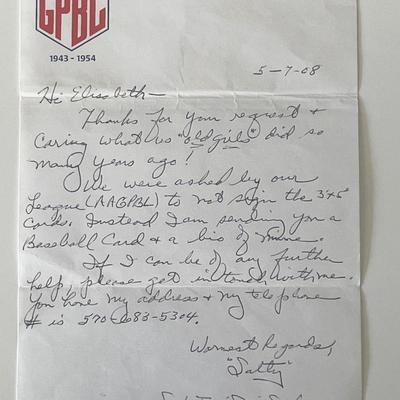 GPBL
1943 - 1954
5-7-08
Hi Elisabeth—
Thanks for your request &
caring what us "old girls" did so
many years ago!
We were asked by our
League (AAGPBL) to not sign the 3x5
cards. Instead I am sending you a
Baseball Card & a bio of mine.
If I can be of any further
help, please get in touch with me.
You have my address & my telephone
# is 570-683-5304.
Warmest Regards,
"Salty"